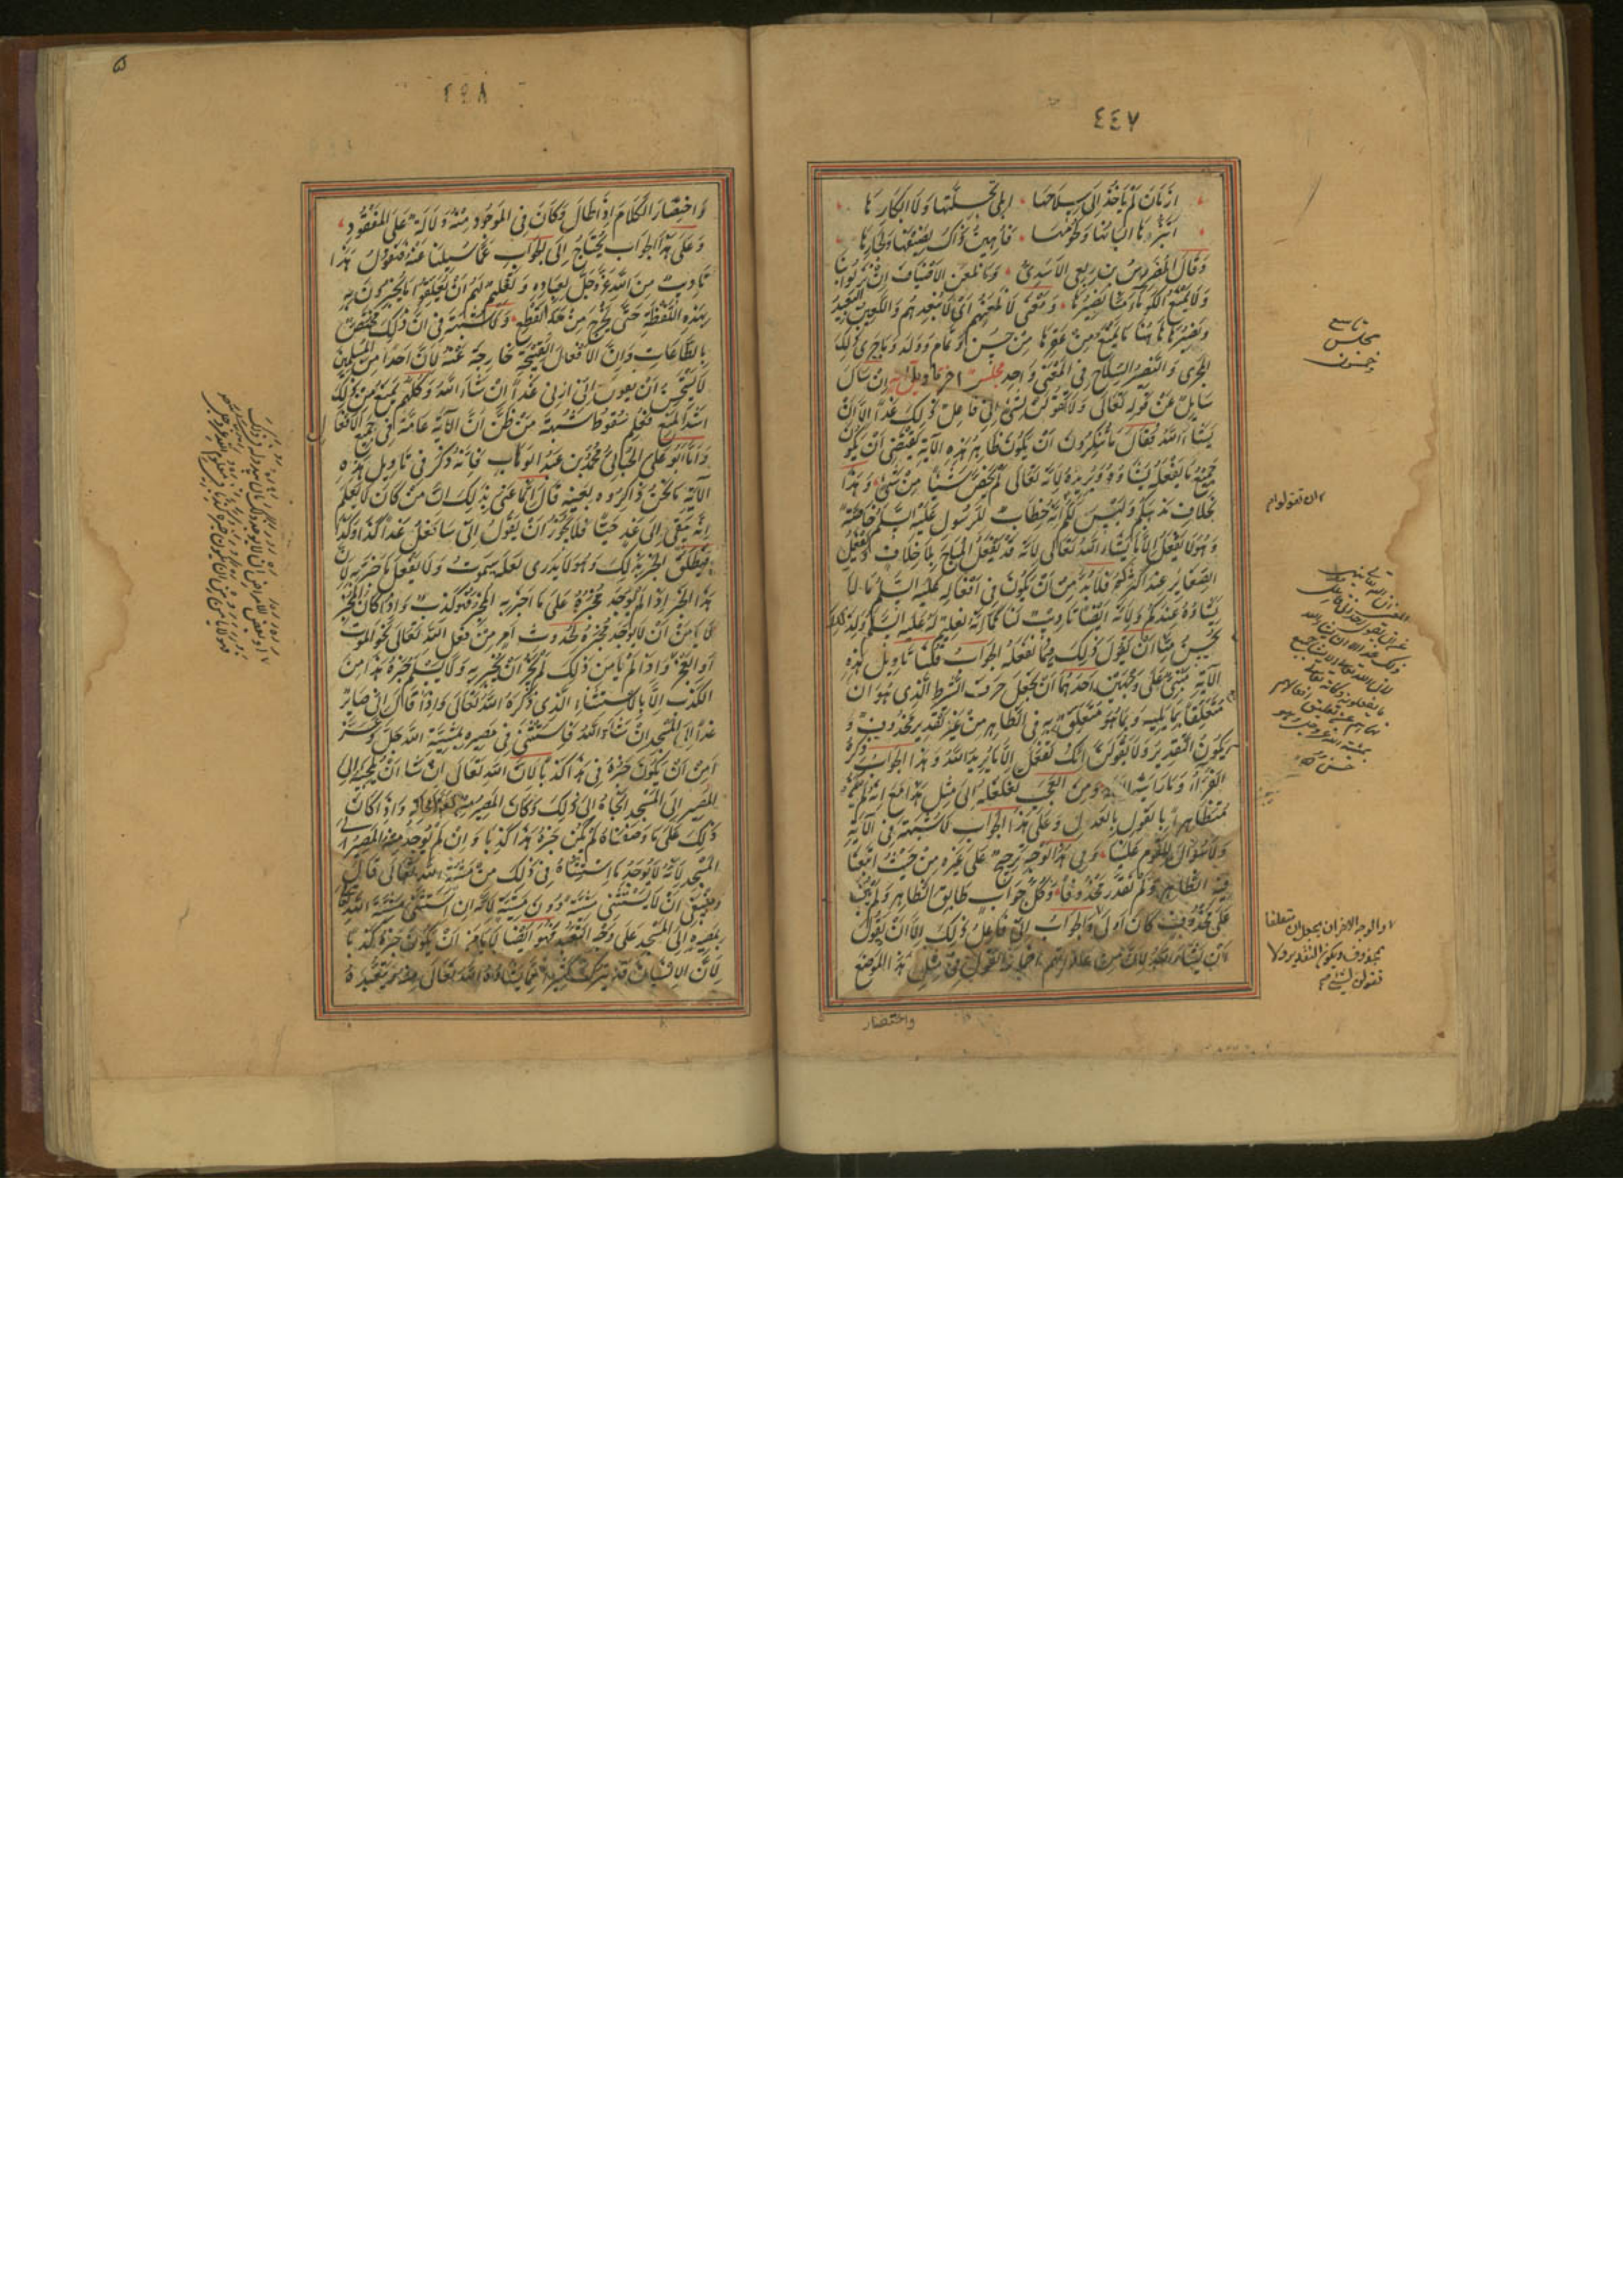 ٤٤٧
ازمان لم يأخذ إلي سلاحها إبلي بجلتها ولا أبكارها
ابتزها ألبانها ولحومها فأهين ذاك لضيفها ولجارها
وقال المضرس بن ربعي الأسدي وما نلعن الأضياف إن نزلوا بنا
ولا يمنع الكوماء منا نصيرها ومعنى لا نلعنهم أي لا نبعدهم واللعين البعيد
ونصيرها هاهنا ما يمنع من عقرها من حسن وتمام وولد وما جرى ذلك
المجرى والنصير السلاح في المعنى واحد مجلس اخر تاويل اية ان سال
سائل عن قوله تعالى ولا تقولن لشيء إني فاعل ذلك غدا إلا أن
يشاء الله فقال ما تنكرون أن يكون ظاهر هذه الآية يقتضي أن يكون
جميع ما يفعله يشاؤه ويريده لأنه تعالى لم يخص شيئا من شيء وهذا
بخلاف مذهبكم وليس لكم إنه خطاب للرسول عليه السلام خاصة
وهو لا يفعل إلا ما يشاء الله تعالى لأنه قد يفعل المباح بلا خلاف ويفعل
الصغائر عند أكثركم فلا بد من أن يكون في أفعاله عليه السلام ما لا
يشاؤه عندكم ولأنه أيضا تأديب لنا كما أنه تعليم له عليه السلام ولذلك
يحسن منا أن نقول ذلك فيما نفعله الجواب قلنا تأويل هذه
الآية مبني على وجهين أحدهما أن نجعل حرف الشرط الذي هو ان
متعلقا بما يليه وبما هو متعلق به في الظاهر من غير تقدير محذوف و
يكون التقدير ولا تقولن انك تفعل إلا ما يريد الله وهذا الجواب ذكره
الفراء وما رأيته إلا له ومن العجب تغلغله إلى مثل هذا مع انه لم يكن
متظاهرا بالقول بالعدل وعلى هذا الجواب لا شبهة في الآية
ولا سؤال للقوم علينا وفي هذا الوجه ترجيح على غيره من حيث اتبعنا
فيه الظاهر ولم نقدر محذوفا وكل جواب طابق الظاهر ولم يبن
على محذوف كان أولى والجواب إني فاعل ذلك إلا أن يقول
أن يشاء الله لأن من عاداتهم اضمار القول في مثل هذا الموضع
واختصار
تاسع
مجلس
وخمسون
ان تقولوا
والوجه الاخر ان يجعل ان متعلقا
بمحذوف ويكون التقدير ولا
تقولن لشيء
٥
٤٤٨
واختصار الكلام اذا طال وكان في الموجود منه دلالة على المفقود
وعلى هذا الجواب يحتاج إلى الجواب عما سئلنا عنه فنقول هذا
تأديب من الله عز وجل لعباده وتعليم لهم أن يعلقوا ما يخبرون به
بهذه اللفظة حتى يخرج من حد القطع ولا شبهة في ان ذلك مختص
بالطاعات وان الأفعال القبيحة خارجة عنه لأن أحدا من المسلمين
لا يستحسن أن يقول إني أزني غدا إن شاء الله وكلهم يمنع من ذلك
أشد المنع فعلم سقوط شبهة من ظن أن الآية عامة في جميع الأفعال
وأما أبو علي الجبائي محمد بن عبد الوهاب فإنه ذكر في تأويل هذه
الآية ما نحن ذاكروه بعينه قال إنما عنى بذلك ان من كان لا يعلم
انه يبقى إلى غد حيا فلا يجوز أن يقول إني سأفعل غدا كذا وكذا
فيطلق الخبر بذلك وهو لا يدري لعله سيموت ولا يفعل ما خبر به لأن
هذا الخبر إذا لم يوجد مخبره على ما أخبر به المخبر فهو كذب وإذا كان المخبر
لا يأمن أن لا يوجد مخبره لحدوث أمر من فعل الله تعالى نحو الموت
أو العجز وإذا لم يأمن ذلك لم يجز أن يخبر به ولا يسلم خبره هذا من
الكذب إلا بالاستثناء الذي ذكره الله تعالى وإذا قال إني صائر
غدا إلى المسجد إن شاء الله فاستثنى في مصيره بمشية الله جل وعز
أمن أن يكون خبره في هذا كذبا لأن الله تعالى ان شاء أن يلجئه إلى
المصير إلى المسجد ألجأه إلى ذلك وكان المصير منه لا محالة وإذا كان
ذلك على ما وصفناه لم يكن خبره هذا كذبا وان لم يوجد منه المصير إلى
المسجد لأنه لم يوجد ما استثناه في ذلك من مشية الله تعالى قال
وينبغي أن لا يستثني مشية دون مشية لأنه ان استثنى مشية الله تعالى
بمصيره إلى المسجد على وجه التعبد فهو ايضا لا يأمن أن يكون خبره كذبا
لأن الانسان قد يترك كثيرا مما يشاؤه الله تعالى منه ويتعبده